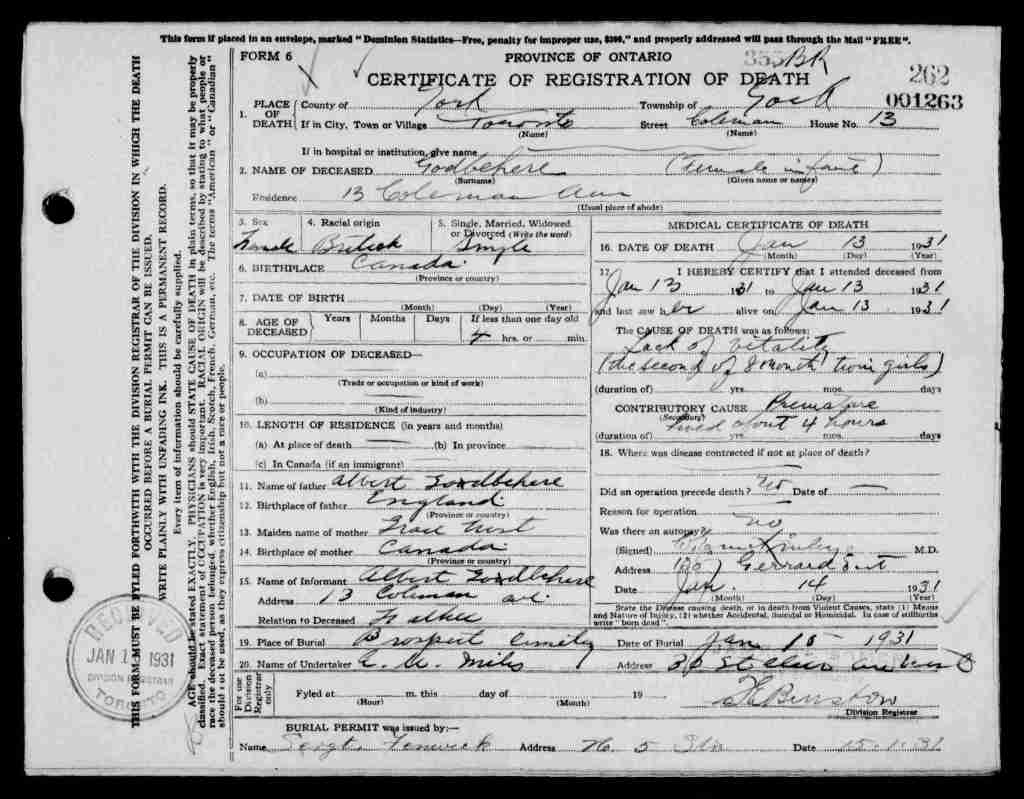 This form if placed in an envelope, marked "Dominion Statistics—Free, penalty for improper use, $300," and properly addressed will pass through the Mail "FREE".
FORM 6
PROVINCE OF ONTARIO
BR
CERTIFICATE OF REGISTRATION OF DEATH
262
001263
1. PLACE OF DEATH
County of York Township of York
If in City, Town or Village Toronto Street Coleman House No. 13
(Name) (Name)
If in hospital or institution, give name
2. NAME OF DECEASED Godbehere (Female infant)
(Surname) (Given name or names)
Residence 13 Coleman Ave
(Usual place of abode)
3. Sex Female
4. Racial origin British
5. Single, Married, Widowed or Divorced (Write the word) Single
6. BIRTHPLACE Canada
(Province or country)
7. DATE OF BIRTH
(Month) (Day) (Year)
8. AGE OF DECEASED
Years Months Days If less than one day old
4 hrs. or min.
9. OCCUPATION OF DECEASED—
(a)
(Trade or occupation or kind of work)
(b)
(Kind of industry)
10. LENGTH OF RESIDENCE (in years and months)
(a) At place of death (b) In province
(c) In Canada (if an immigrant)
11. Name of father Albert Godbehere
12. Birthplace of father England
(Province or country)
13. Maiden name of mother
14. Birthplace of mother Canada
(Province or country)
15. Name of Informant Albert Godbehere
Address 13 Coleman ave
Relation to Deceased Father
MEDICAL CERTIFICATE OF DEATH
16. DATE OF DEATH Jan 13 1931
(Month) (Day) (Year)
17. I HEREBY CERTIFY that I attended deceased from
Jan 13 1931 to Jan 13 1931
and last saw her alive on Jan 13 1931
The CAUSE OF DEATH was as follows:
Lack of vitality
(the second of 8 month twin girls)
(duration of) yrs. mos. days
CONTRIBUTORY CAUSE Premature
(Secondary) lived about 4 hours
(duration of) yrs. mos. days
18. Where was disease contracted if not at place of death?
Did an operation precede death? No Date of
Reason for operation
Was there an autopsy no
(Signed) M.D.
Address Gerrard
Date Jan. 14 1931
(Month) (Year)
State the Disease causing death, or in death from Violent Causes, state (1) Means and Nature of Injury, (2) whether Accidental, Suicidal or Homicidal. In case of stillbirths write "born dead".
19. Place of Burial Prospect Cemetery Date of Burial Jan 15 1931
20. Name of Undertaker Miles Address 30 St Clair ave West
For use Division Registrar only
Fyled at m. this day of 19
(Hour) (Month)
Division Registrar
BURIAL PERMIT was issued by:—
Name Sergt. Fenwick Address No. 5 Stn Date 15.1.31
THIS FORM MUST BE FYLED FORTHWITH WITH THE DIVISION REGISTRAR OF THE DIVISION IN WHICH THE DEATH
OCCURRED BEFORE A BURIAL PERMIT CAN BE ISSUED.
WRITE PLAINLY WITH UNFADING INK. THIS IS A PERMANENT RECORD.
Every item of information should be carefully supplied.
AGE should be stated EXACTLY. PHYSICIANS should STATE CAUSE OF DEATH in plain terms, so that it may be properly
classified. Exact statement of OCCUPATION is very important. RACIAL ORIGIN will be described by stating to what people or
race the deceased person belonged, whether English, Irish, Scotch, French, German, etc. The terms "American" or "Canadian"
should not be used, as they express citizenship but not a race or people.
RECEIVED
JAN 1 1931
DIVISION REGISTRAR
TORONTO